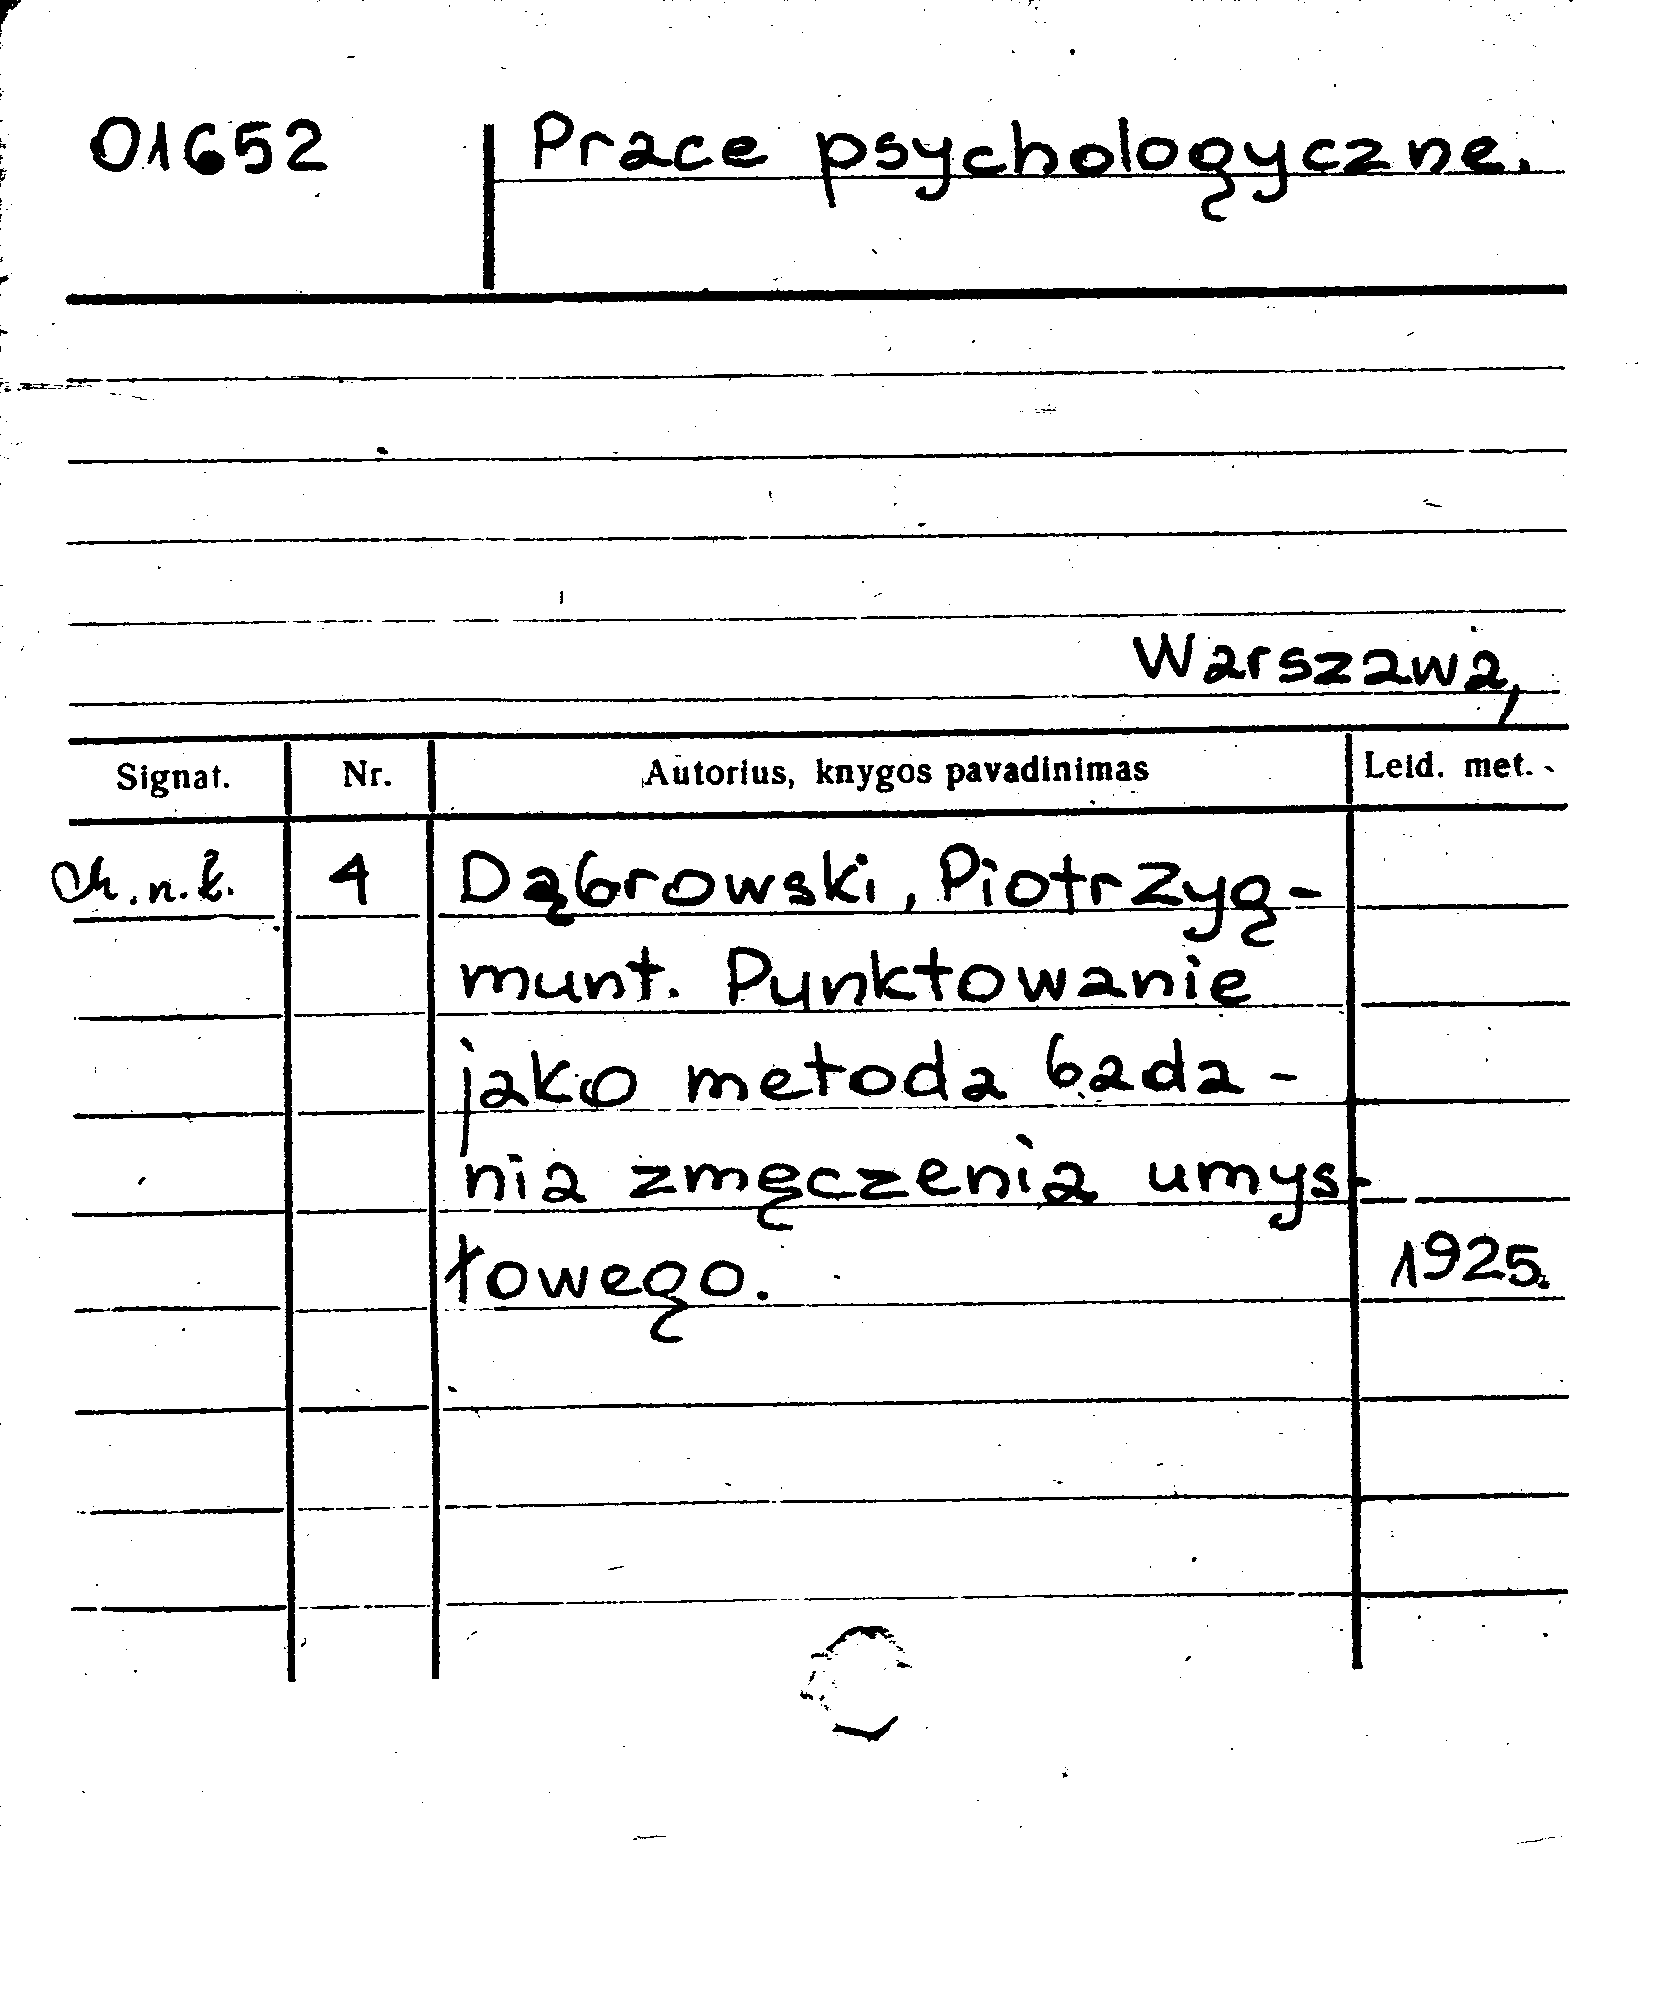 01652 Prace psychologyczne.
Warszawa,
Signat. Nr. Autorius, knygos pavadinimas Leid. met.
4 Dąbrowski, Piotr Zyg-
munt. Punktowanie
jako metoda bada-
nia zmęczenia umys-
łowego. 1925.